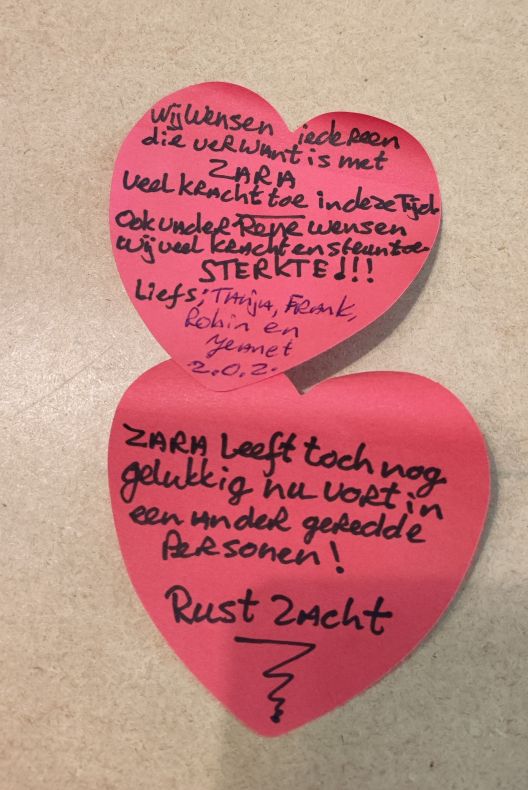 Wij Wensen iedereen
die verwant is met
ZARA
veel kracht toe in deze Tijd
Ook vader Rene wensen
wij veel kracht en steun toe
STERKTE!!!
Liefs; Tanja, Frank,
Robin en
Jeanet
2.0.2.
ZARA Leeft toch nog
gelukkig nu vort in
een ander geredde
Personen!
Rust Zacht